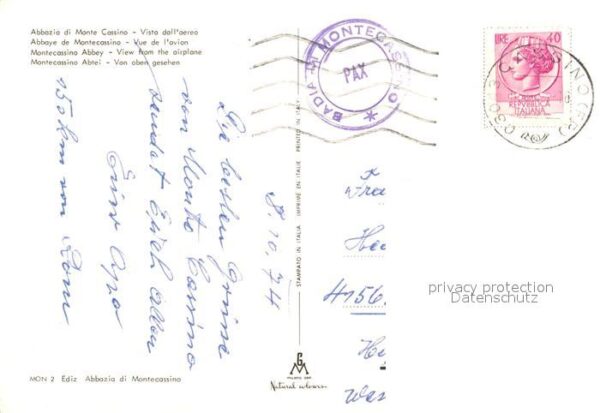 Abbazia di Monte Cassino - Vista dall'aereo
Abbaye de Montecassino - Vue de l'avion
Montecassino Abbey - View from the airplane
Montecassino Abtei - Von oben gesehen
BADIA DI MONTECASSINO
PAX
LIRE 40
REPUBBLICA
ITALIANA
8.10.74
Die besten Grüsse
von Monte Cassino
sendet Euch allen
Euer Opa
150 km von Rom
STAMPATO IN ITALIA IMPRIMÉ EN ITALIE PRINTED IN ITALIE
4156
privacy protection
Datenschutz
MON 2 Ediz Abbazia di Montecassino
Natural colours